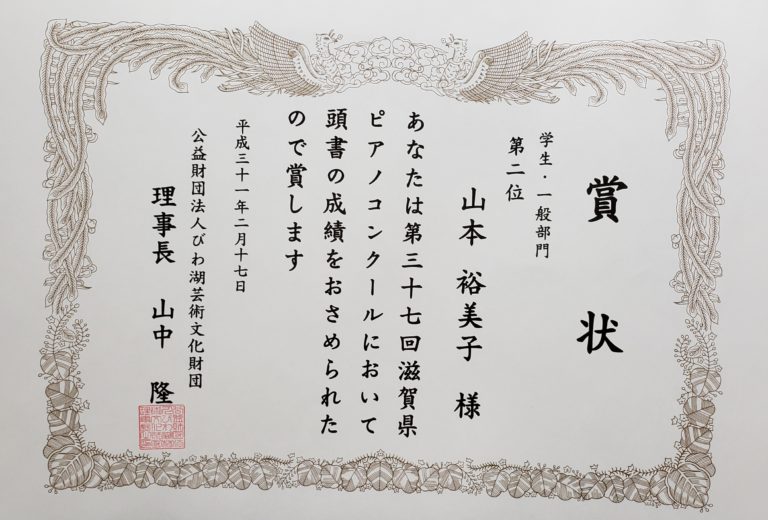 賞状
学生・一般部門
第二位
山本 裕美子 様
あなたは第三十七回滋賀県
ピアノコンクールにおいて
頭書の成績をおさめられた
ので賞します
平成三十一年二月十七日
公益財団法人びわ湖芸術文化財団
理事長 山中 隆